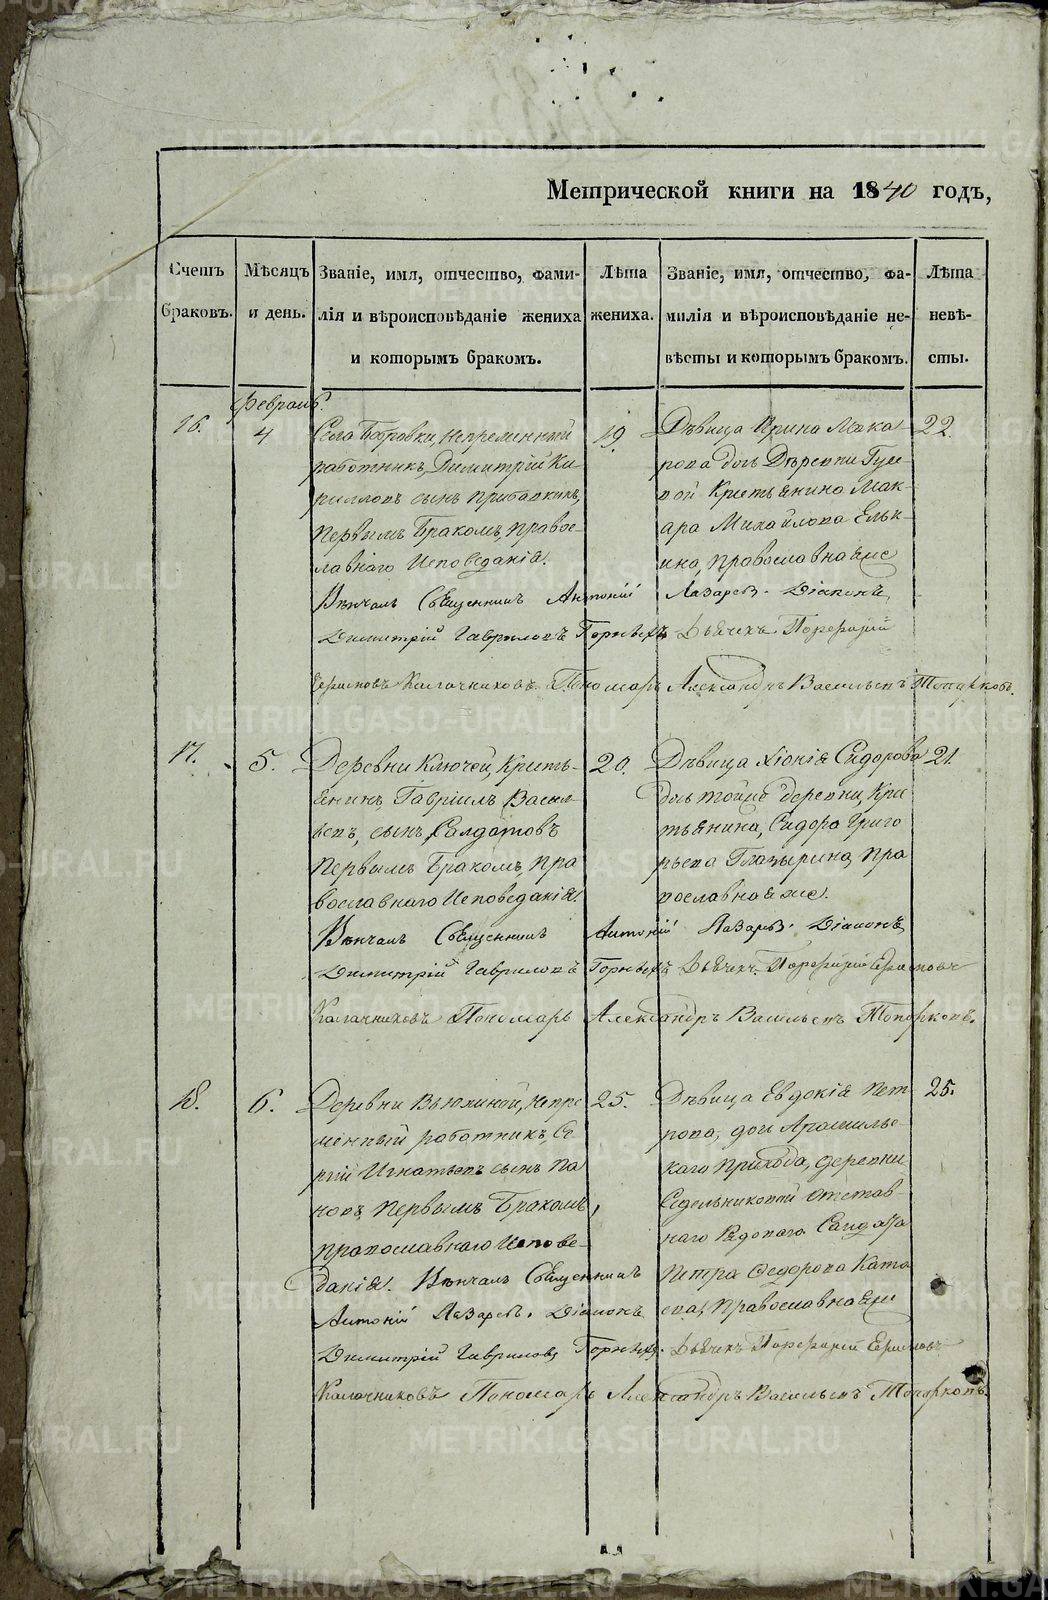 Метрической книги на 1840 годъ,
Счетъ браковъ.
Мѣсяцъ и день.
Званіе, имя, отчество, фами-
лія и вѣроисповѣданіе жениха
и которымъ бракомъ.
Лѣта жениха.
Званіе, имя, отчество, фа-
милія и вѣроисповѣданіе не-
вѣсты и которымъ бракомъ.
Лѣта невѣ-
сты.
Февраль.
16.
4
Села Бобровки, Непременный
работникъ, Димитрій Ки-
рилловъ сынъ
Первымъ Бракомъ, право-
славнаго Исповеданія.
19.
Дѣвица Ирина Мака
рова дочь Дѣревни
Крестьянина Мак-
ара Михайлова Ельк-
ина, Православная же
22.
Вѣнчалъ Священникъ Антоній Лазаревъ. Діаконъ
Димитрій Гавриловъ Дьячекъ Порфирій
Калачниковъ Пономарь Александръ Васильевъ Топорковъ.
17.
5.
Деревни Ключей, Кресть-
янинъ, Гавріилъ Василь-
евъ, сынъ, Салдатовъ
Первымъ Бракомъ, пра
вославнаго Исповеданія.
20.
Дѣвица Хіонія Сидорова
дочь тойже деревни, Кре
стьянина, Сидора Григо
рьева Глазырина, Пра
вославная же.
21.
Вѣнчалъ Священникъ Антоній Лазаревъ. Діаконъ
Димитрій Гавриловъ Дьячекъ Порфирій
Калачниковъ Пономарь Александръ Васильевъ Топорковъ.
18.
6.
Деревни Вьюхиной, Непре
менный работникъ, Се
ргій Игнатьевъ сынъ Па
новъ, Первымъ Бракомъ,
православнаго Испове-
данія.
25.
Дѣвица Евдокія Пет
рова, дочь Арамильс-
каго прихода, деревни
Седельниковой отстав-
наго Рядоваго Салдата
Петра Федорова Ката
ева, Православная же
25.
Вѣнчалъ Священникъ
Антоній Лазаревъ. Діаконъ
Димитрій Гавриловъ Дьячекъ Порфирій
Калачниковъ Пономарь Александръ Васильевъ Топорковъ.
METRIKI.GASO-URAL.RU